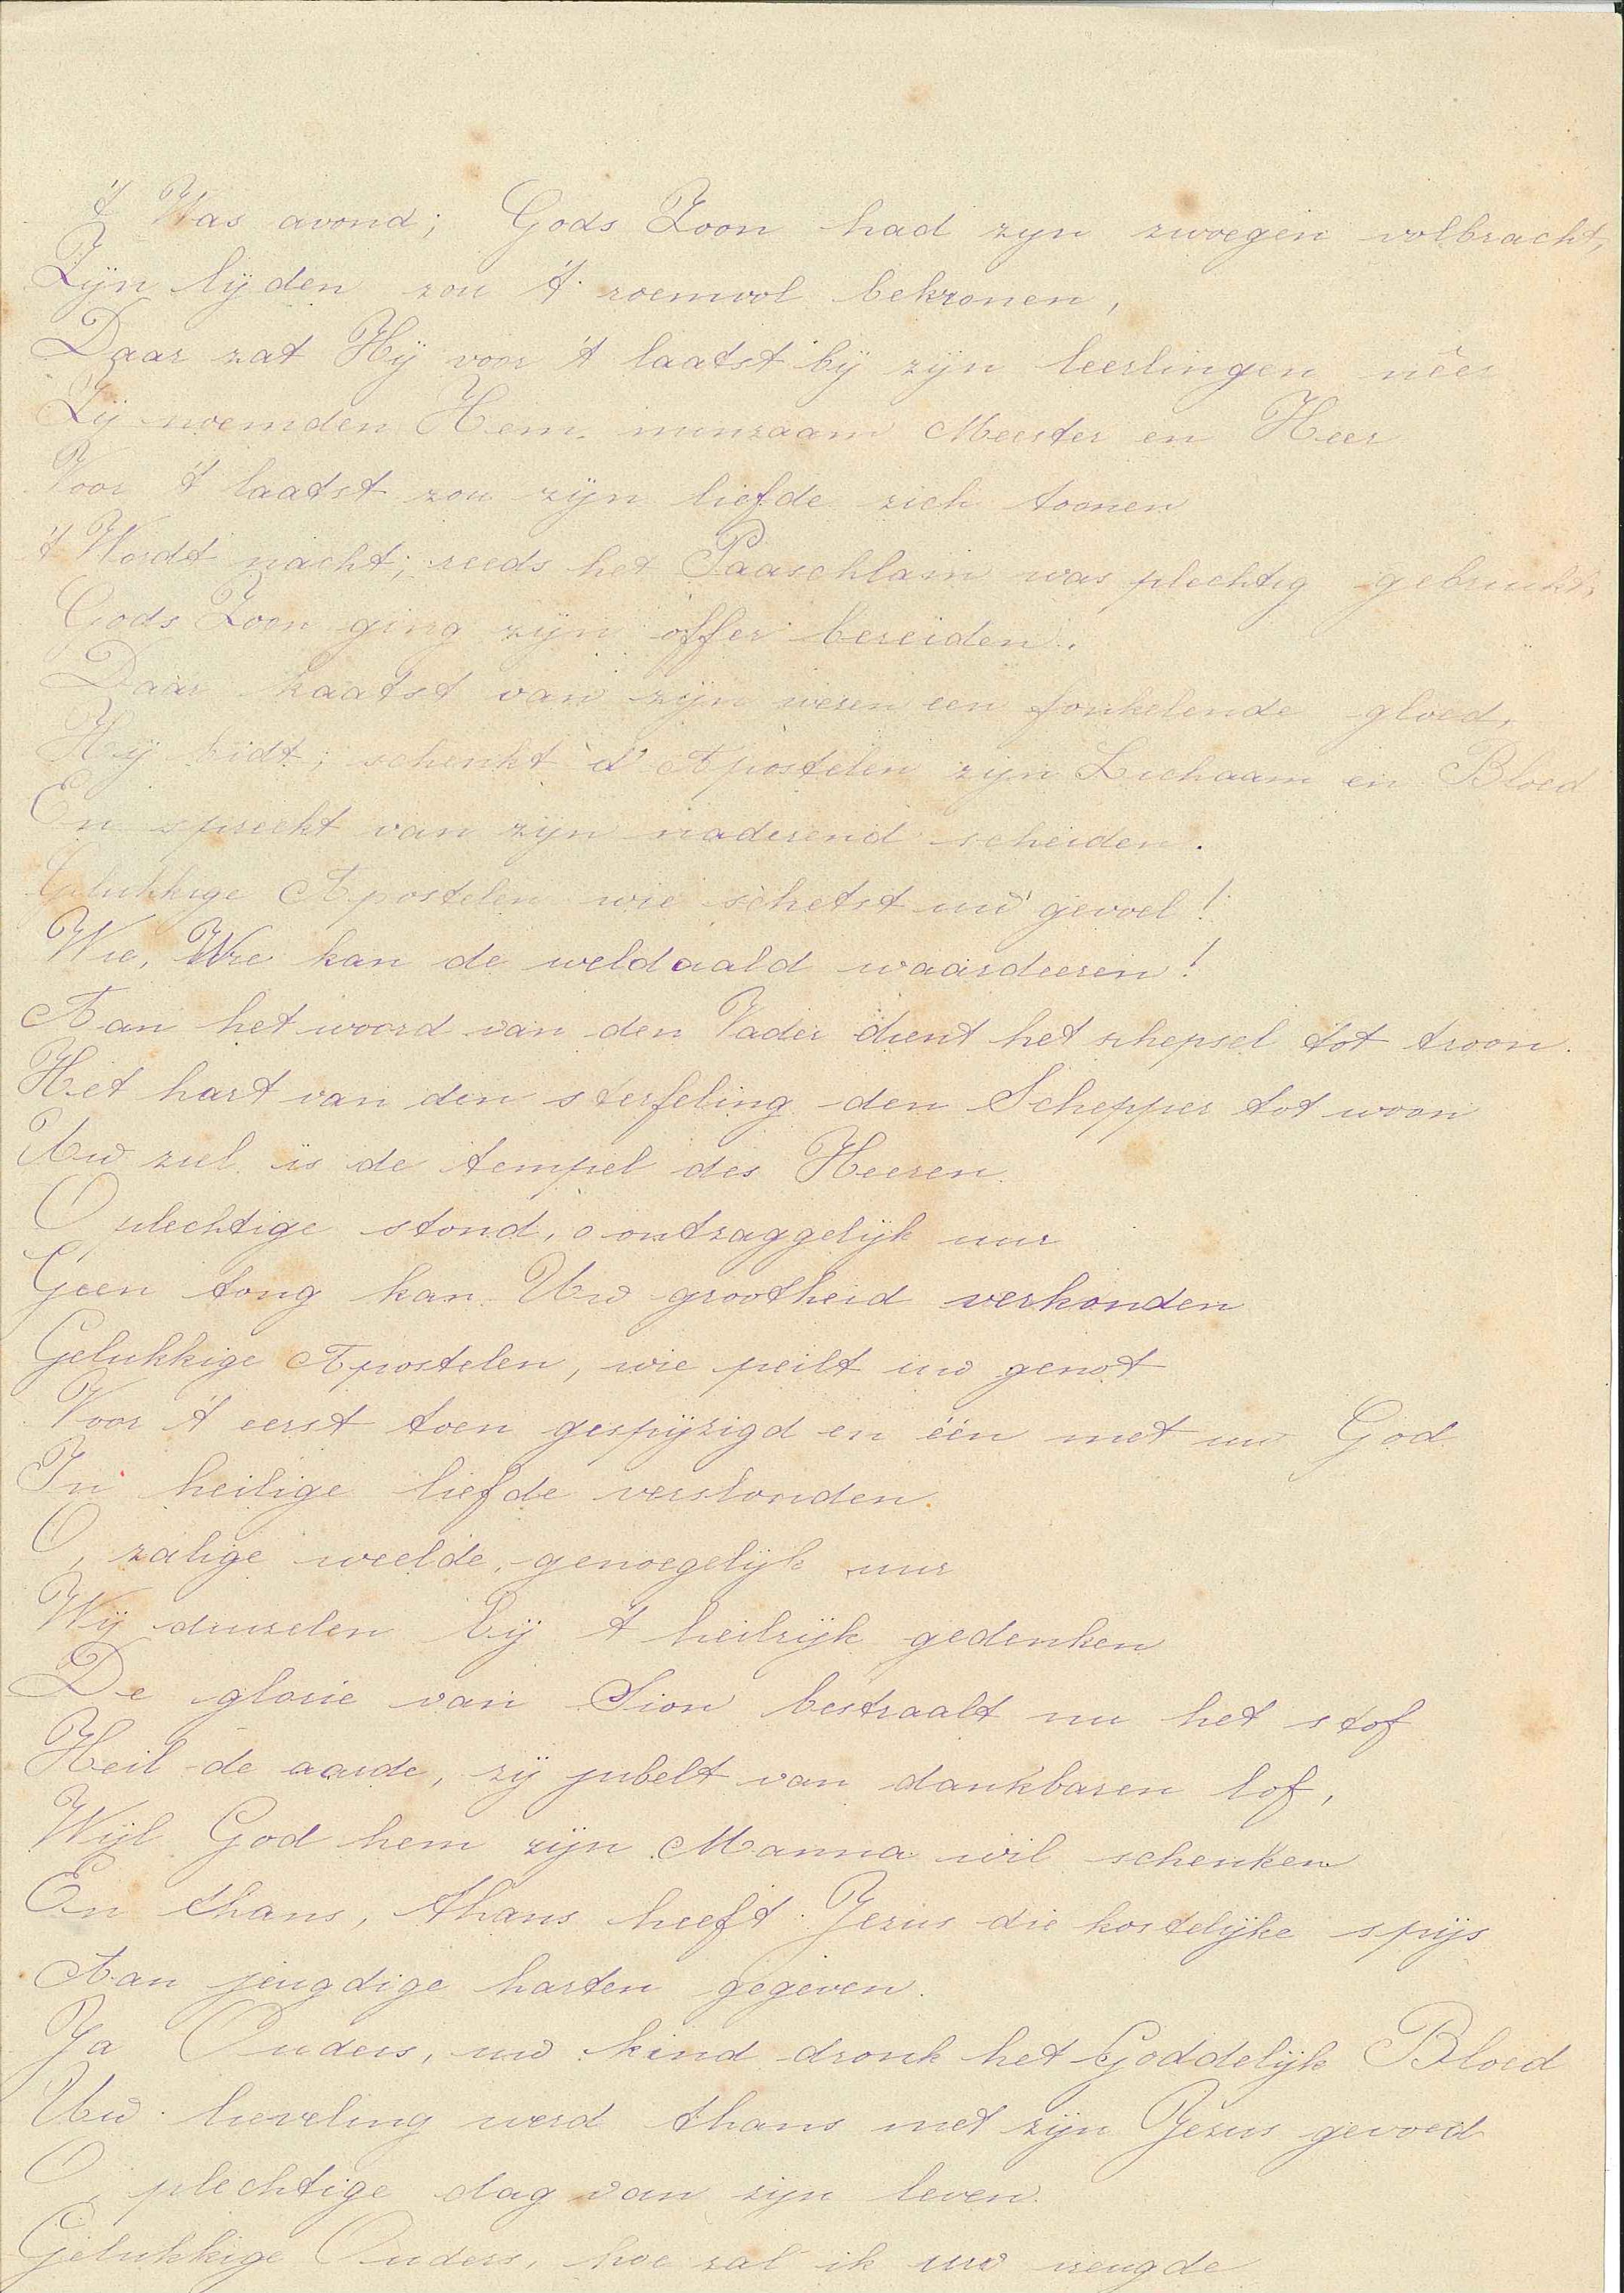 't Was avond; Gods Zoon had zyn zwoegen volbracht,
Zijn lijden zou 't roemvol bekronen,
Daar zat Hij voor 't laatst bij zijn leerlingen nêer
Zij noemden Hem minzaam Meester en Heer
Voor 't laatst zou zijn liefde zich toonen
't Wordt nacht; reeds het Paaschlam was plechtig gebruikt,
Gods Zoon ging zijn offer bereiden.
Daar kaatst van zijn wezen een fonkelende gloed,
Hij bidt; schenkt d' Apostelen zijn Lichaam en Bloed
En spreekt van zijn naderend scheiden.
Glukkige Apostelen wie schetst uw gevoel!
Wie, Wie kan de weldaald waardeeren!
Aan het woord van den Vader dient het schepsel tot troon.
Het hart van den sterfeling den Schepper tot woon
Uw ziel is de tempel des Heeren.
O plechtige stond, o ontzaggelijk uur
Geen tong kan Uw grootheid verkonden
Gelukkige Apostelen, wie peilt uw genot
Voor 't eerst toen gespijzigd en één met uw God
In heilige liefde verslonden.
O, zalige weelde, genoegelijk uur
Wij duizelen bij 't heilrijk gedenken
De glorie van Sion bestraalt nu het stof
Heil de aarde, zij jubelt van dankbaren lof,
Wijl God hem zijn Manna wil schenken
En thans, thans heeft Jezus die kostelijke spijs
Aan jeugdige harten gegeven.
Ja Ouders, uw kind dronk het Goddelijk Bloed
Uw lieveling werd thans met zijn Jezus gevoed
O, plechtige dag van zijn leven.
Gelukkige Ouders, hoe zal ik uw vreugde